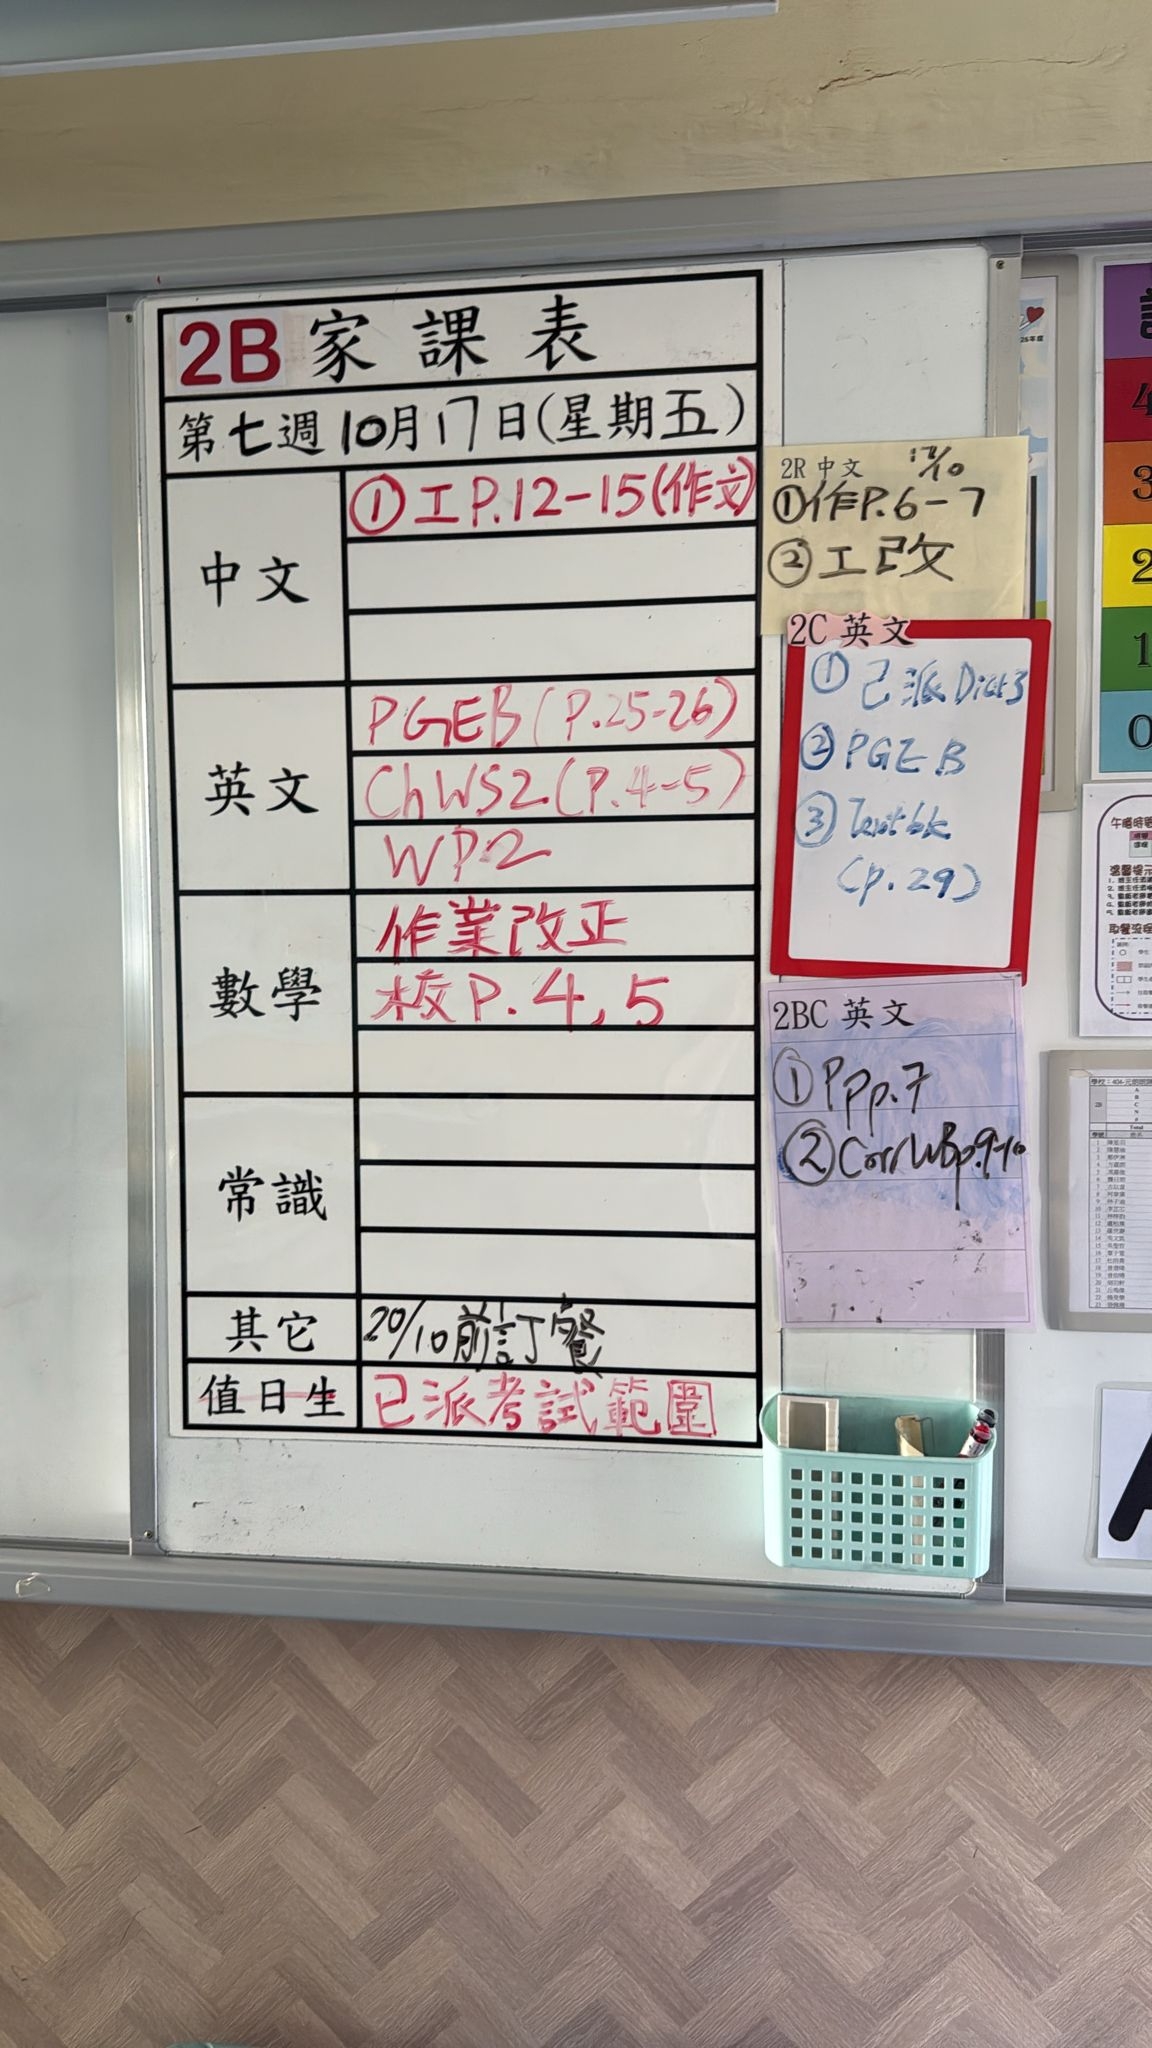 2B 家課表
第七週10月17日(星期五)
中文
①工P.12-15(作文)
英文
PGEB(P.25-26)
ChWS2(P.4-5)
WP2
數學
作業改正
校P.4,5
常識
其它
20/10前訂餐
值日生
已派考試範圍
2R 中文 17/10
①作P.6-7
②工改
2C 英文
①已派Dict3
②PGEB
③Textbk
(p.29)
2BC 英文
①PPp.7
②Corr/WBp.9-10
4
3
2
1
0
溫馨提示
取餐流程
A